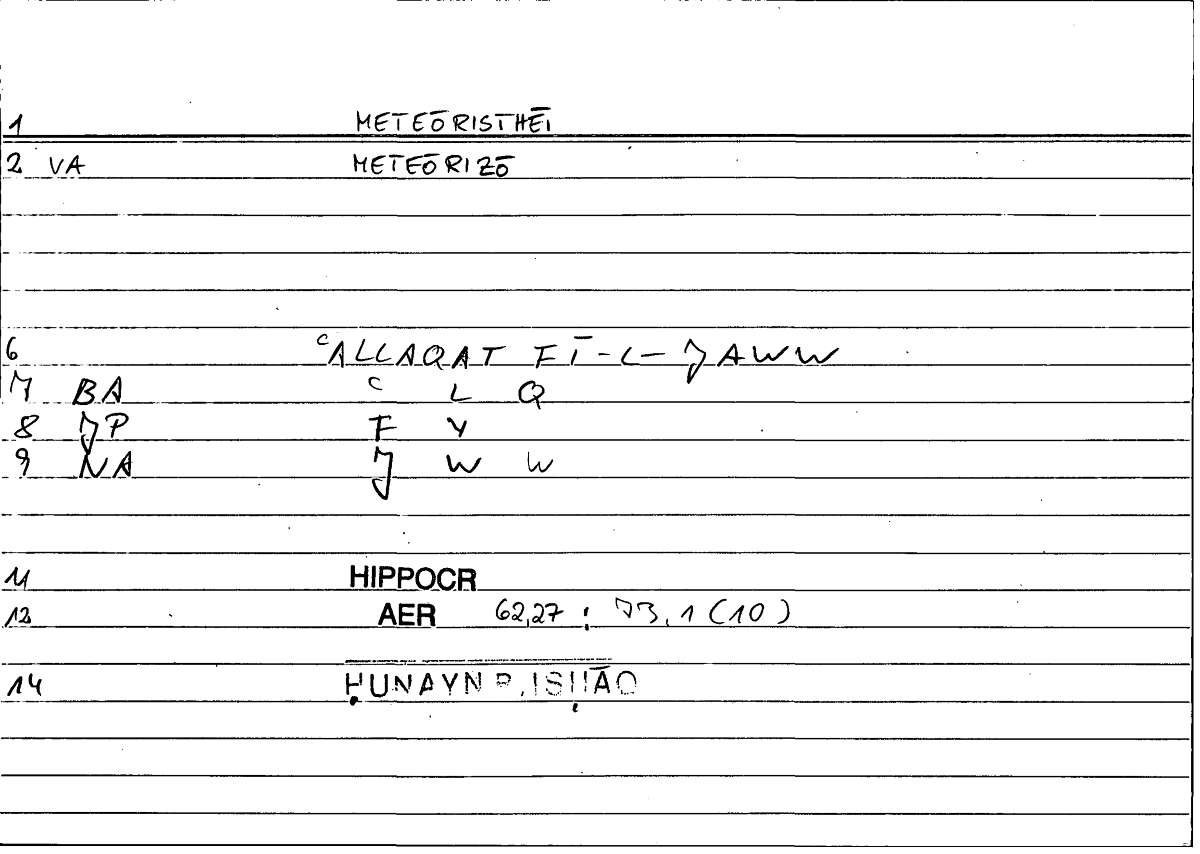 1 METEŌRISTHĒI
2 VA METEŌRIZŌ
6 ᶜALLAQAT FĪ-L-JAWW
7 BA ᶜ L Q
8 JP F Y
9 NA J W W
11 HIPPOCR
12 AER 62,27 ; 73,1 (10)
14 ḤUNAYN B. ISḤĀQ